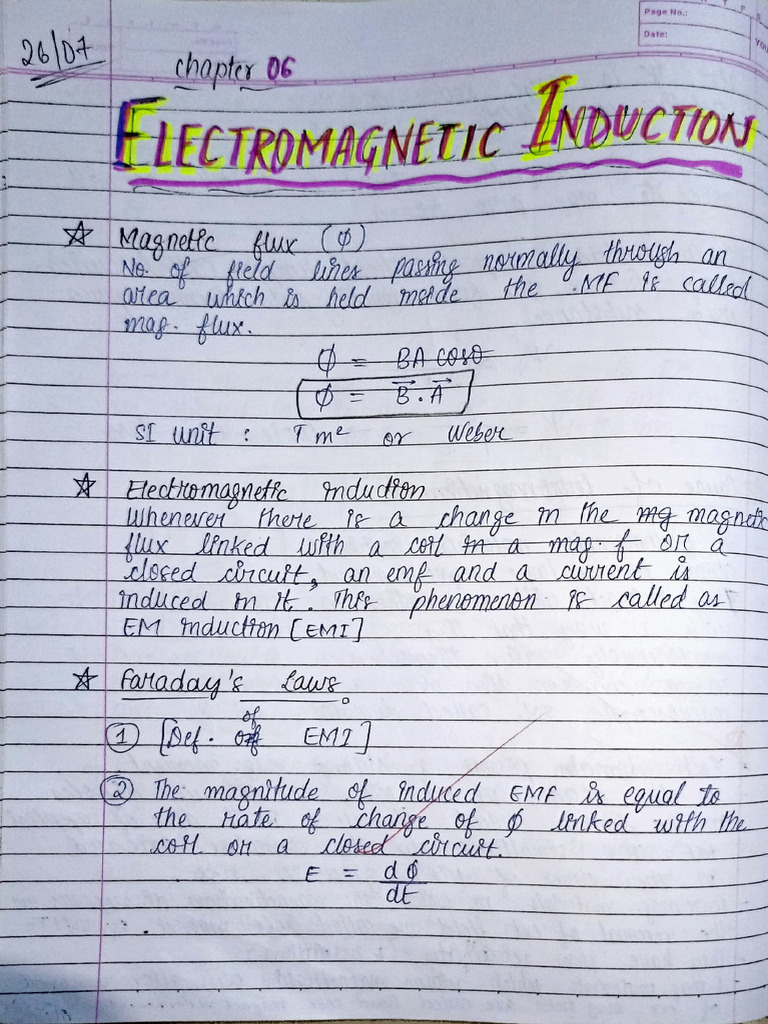 Page No.:
Date:
YOU
26/07
chapter 06
ELECTROMAGNETIC INDUCTION
☆ Magnetic flux (φ)
No. of field lines passing normally through an
area which is held inside the .MF is called
mag. flux.
φ = BA cosθ
φ = B⃗ . A⃗
SI unit : T m² or Weber
☆ Electromagnetic induction
Whenever there is a change in the mg magnetic
flux linked with a coil in a mag. f or a
closed circuit, an emf and a current is
induced in it. This phenomenon is called as
EM induction [EMI]
☆ Faraday's Laws
① [Def. of EMI]
② The magnitude of induced EMF is equal to
the rate of change of φ linked with the
coil or a closed circuit.
E = dφ
dt